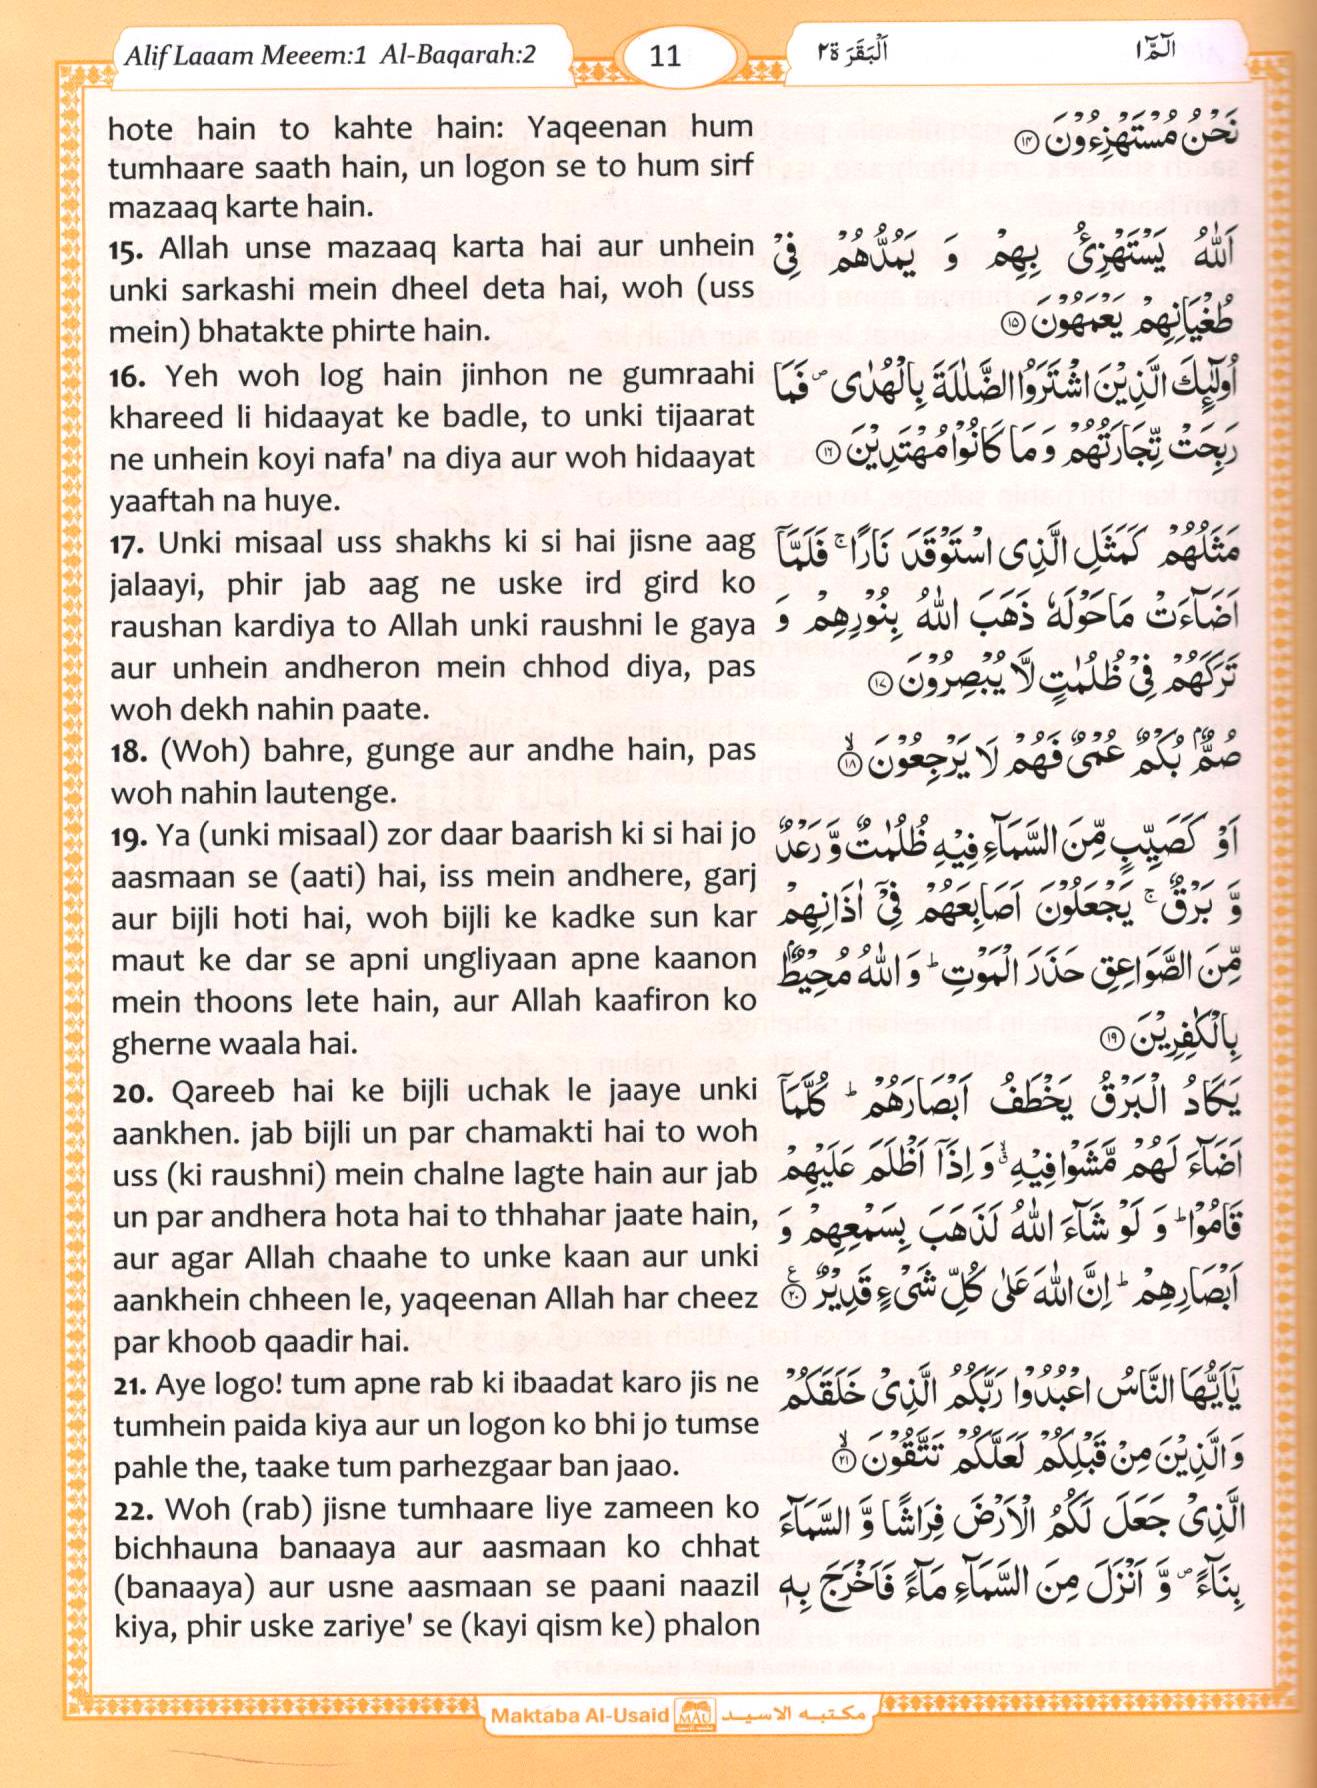 Alif Laaam Meeem:1 Al-Baqarah:2
11
اَلْبَقَرَة٢
الٓمّٓ١
hote hain to kahte hain: Yaqeenan hum
tumhaare saath hain, un logon se to hum sirf
mazaaq karte hain.
15. Allah unse mazaaq karta hai aur unhein
unki sarkashi mein dheel deta hai, woh (uss
mein) bhatakte phirte hain.
16. Yeh woh log hain jinhon ne gumraahi
khareed li hidaayat ke badle, to unki tijaarat
ne unhein koyi nafa' na diya aur woh hidaayat
yaaftah na huye.
17. Unki misaal uss shakhs ki si hai jisne aag
jalaayi, phir jab aag ne uske ird gird ko
raushan kardiya to Allah unki raushni le gaya
aur unhein andheron mein chhod diya, pas
woh dekh nahin paate.
18. (Woh) bahre, gunge aur andhe hain, pas
woh nahin lautenge.
19. Ya (unki misaal) zor daar baarish ki si hai jo
aasmaan se (aati) hai, iss mein andhere, garj
aur bijli hoti hai, woh bijli ke kadke sun kar
maut ke dar se apni ungliyaan apne kaanon
mein thoons lete hain, aur Allah kaafiron ko
gherne waala hai.
20. Qareeb hai ke bijli uchak le jaaye unki
aankhen. jab bijli un par chamakti hai to woh
uss (ki raushni) mein chalne lagte hain aur jab
un par andhera hota hai to thhahar jaate hain,
aur agar Allah chaahe to unke kaan aur unki
aankhein chheen le, yaqeenan Allah har cheez
par khoob qaadir hai.
21. Aye logo! tum apne rab ki ibaadat karo jis ne
tumhein paida kiya aur un logon ko bhi jo tumse
pahle the, taake tum parhezgaar ban jaao.
22. Woh (rab) jisne tumhaare liye zameen ko
bichhauna banaaya aur aasmaan ko chhat
(banaaya) aur usne aasmaan se paani naazil
kiya, phir uske zariye' se (kayi qism ke) phalon
نَحْنُ مُسْتَهْزِءُوْنَ ۝١٤
اَللّٰهُ يَسْتَهْزِئُ بِهِمْ وَ يَمُدُّهُمْ فِيْ
طُغْيَانِهِمْ يَعْمَهُوْنَ ۝١٥
اُولٰٓئِكَ الَّذِيْنَ اشْتَرَوُا الضَّلٰلَةَ بِالْهُدٰى ۪ فَمَا
رَبِحَتْ تِّجَارَتُهُمْ وَمَا كَانُوْا مُهْتَدِيْنَ ۝١٦
مَثَلُهُمْ كَمَثَلِ الَّذِى اسْتَوْقَدَ نَارًا ۚ فَلَمَّآ
اَضَآءَتْ مَاحَوْلَهٗ ذَهَبَ اللّٰهُ بِنُوْرِهِمْ وَ
تَرَكَهُمْ فِيْ ظُلُمٰتٍ لَّا يُبْصِرُوْنَ ۝١٧
صُمٌّۢ بُكْمٌ عُمْىٌ فَهُمْ لَا يَرْجِعُوْنَ ۙ۝١٨
اَوْ كَصَيِّبٍ مِّنَ السَّمَآءِ فِيْهِ ظُلُمٰتٌ وَّرَعْدٌ
وَّ بَرْقٌ ۚ يَجْعَلُوْنَ اَصَابِعَهُمْ فِيْٓ اٰذَانِهِمْ
مِّنَ الصَّوَاعِقِ حَذَرَ الْمَوْتِ ؕ وَ اللّٰهُ مُحِيْطٌۢ
بِالْكٰفِرِيْنَ ۝١٩
يَكَادُ الْبَرْقُ يَخْطَفُ اَبْصَارَهُمْ ؕ كُلَّمَآ
اَضَآءَ لَهُمْ مَّشَوْا فِيْهِ ۙ وَ اِذَآ اَظْلَمَ عَلَيْهِمْ
قَامُوْا ؕ وَ لَوْ شَآءَ اللّٰهُ لَذَهَبَ بِسَمْعِهِمْ وَ
اَبْصَارِهِمْ ؕ اِنَّ اللّٰهَ عَلٰى كُلِّ شَىْءٍ قَدِيْرٌ ۝٢٠ ع
يٰٓاَيُّهَا النَّاسُ اعْبُدُوْا رَبَّكُمُ الَّذِىْ خَلَقَكُمْ
وَالَّذِيْنَ مِنْ قَبْلِكُمْ لَعَلَّكُمْ تَتَّقُوْنَ ۙ۝٢١
الَّذِىْ جَعَلَ لَكُمُ الْاَرْضَ فِرَاشًا وَّ السَّمَآءَ
بِنَآءً ۪ وَّ اَنْزَلَ مِنَ السَّمَآءِ مَآءً فَاَخْرَجَ بِهٖ
Maktaba Al-Usaid MAU مكتبه الاسيد